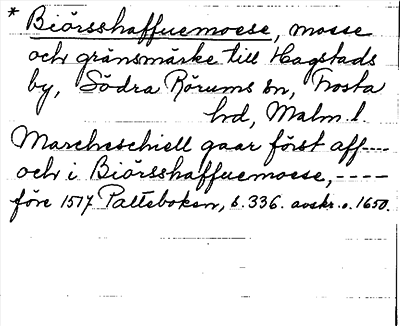 * Biörsshaffuemoese, mosse
och gränsmärke till Hagstads
by, Södra Rörums sn, Frosta
hd, Malm. l.
Marcheschiell gaar först aff----
och i Biörsshaffuemoese, ----
före 1517 Palteboken, s. 336. avskr. o. 1650.